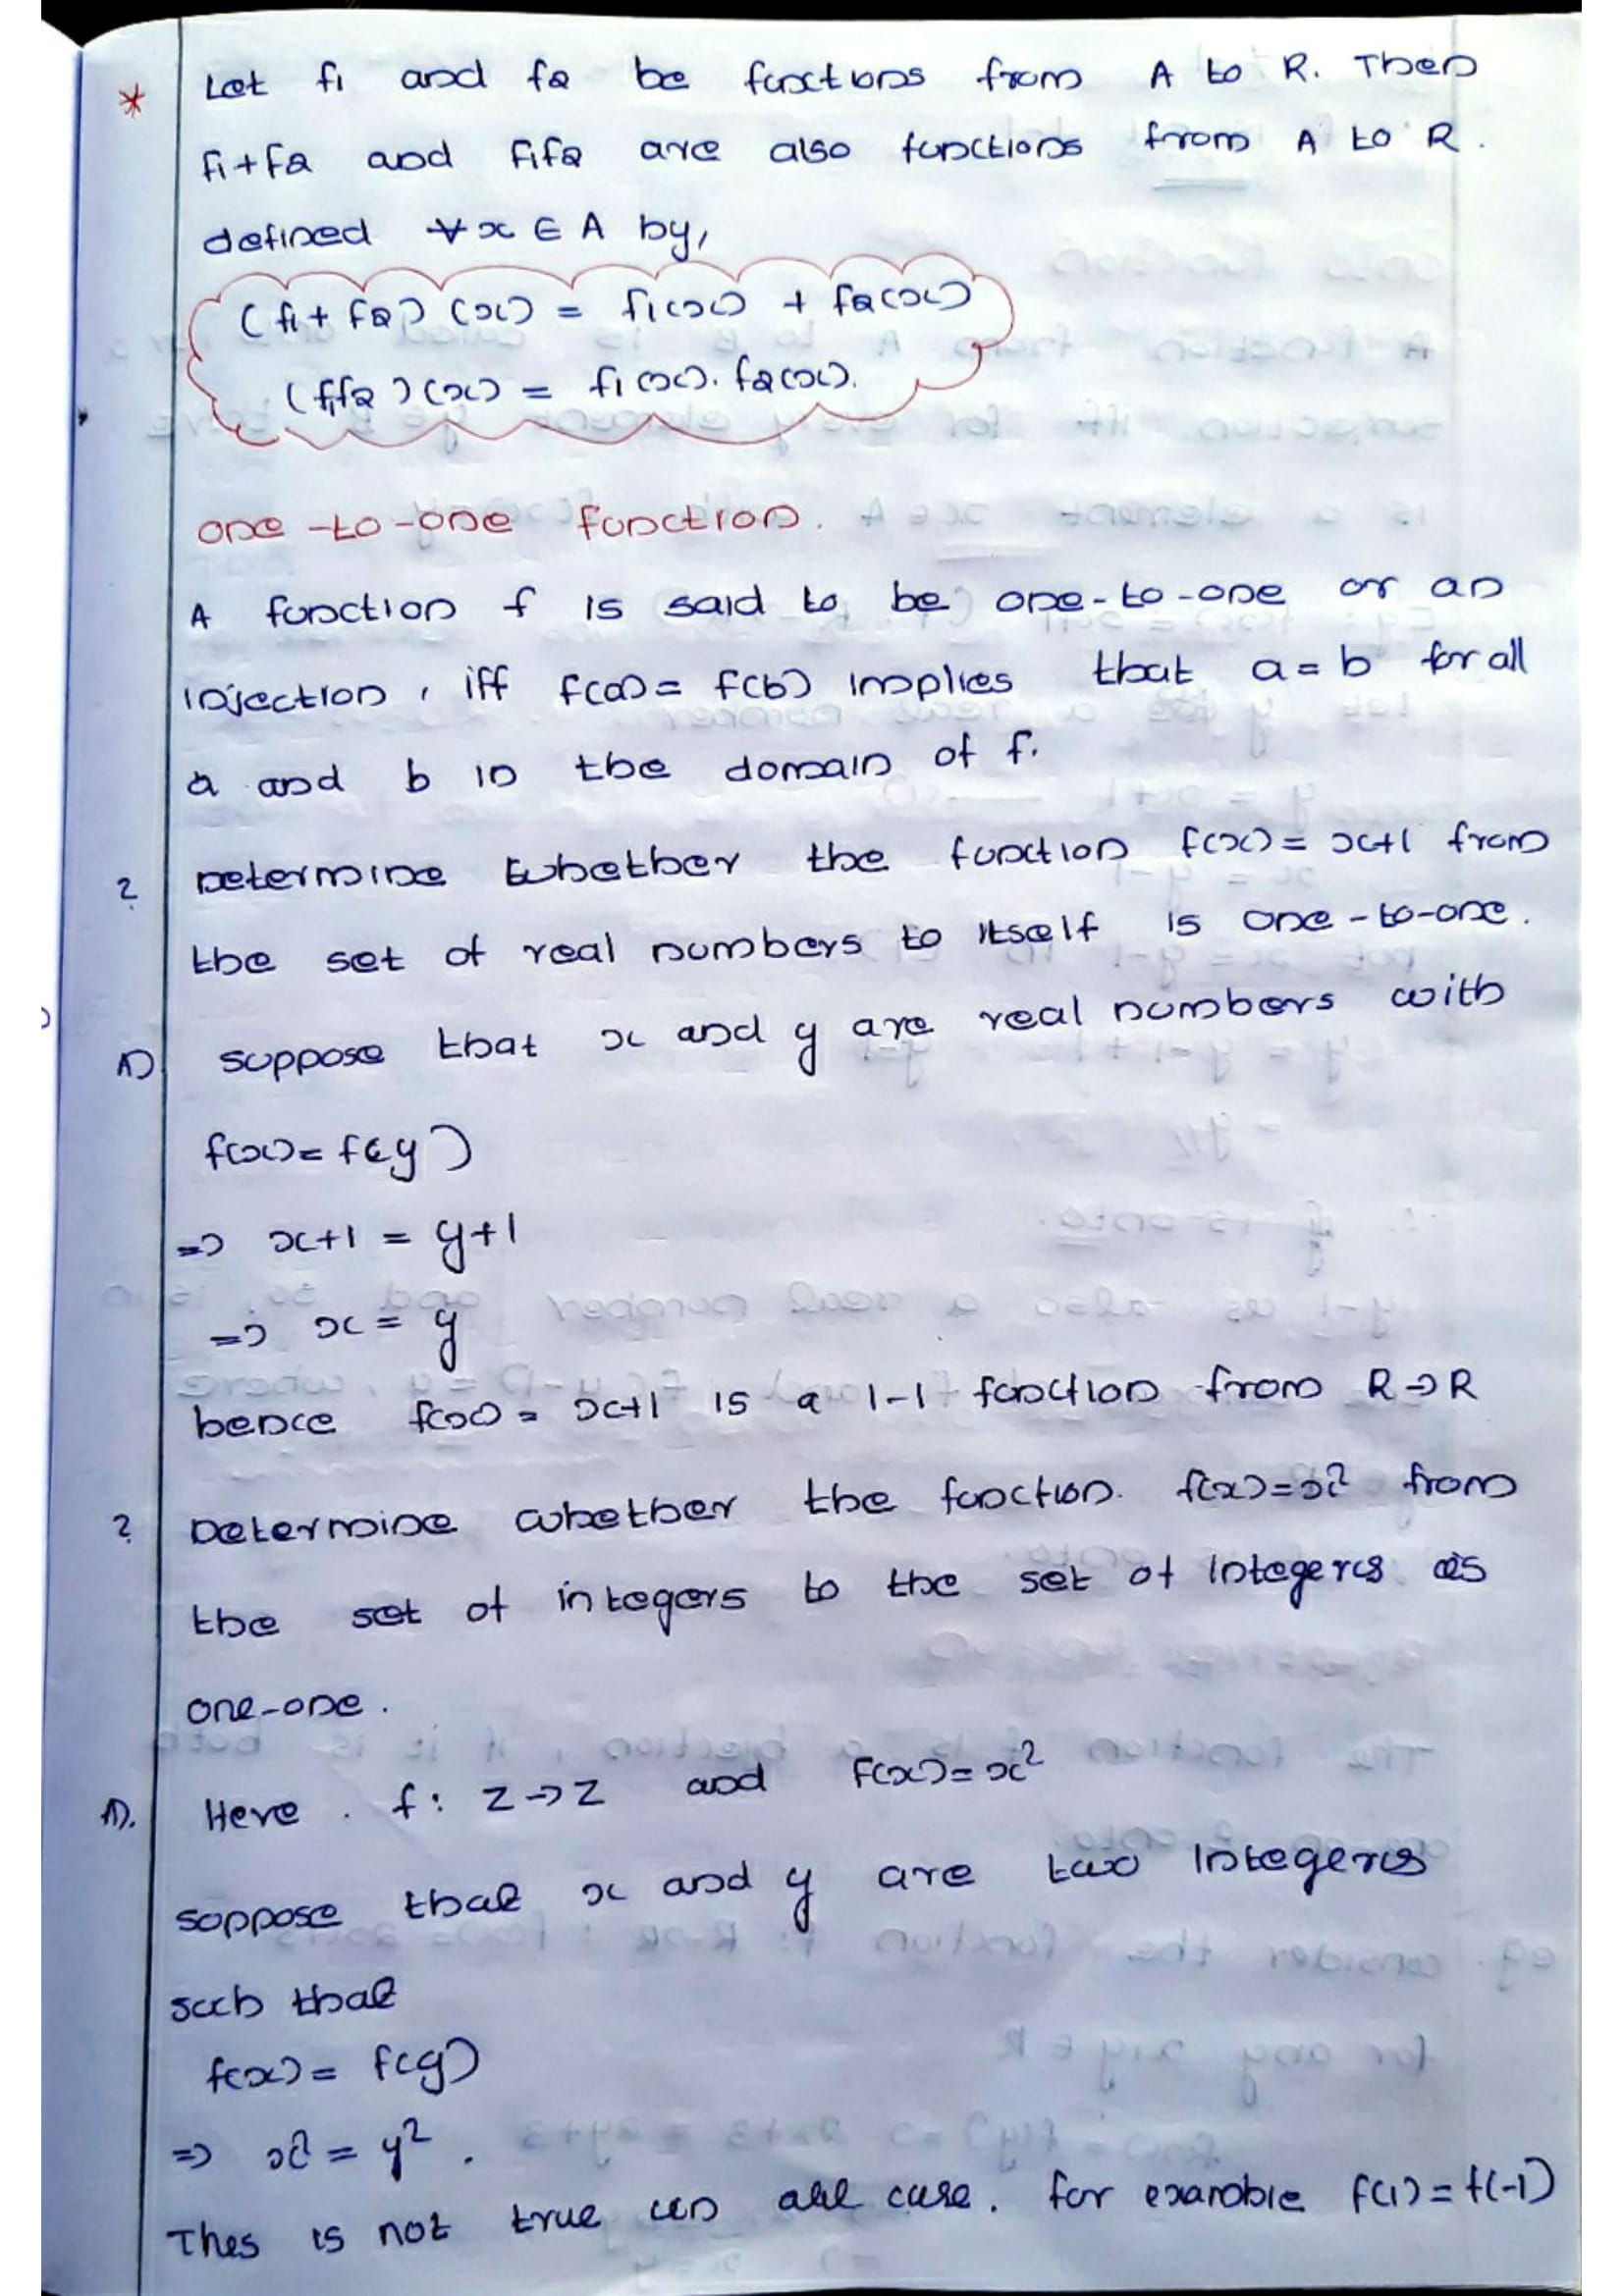 * Let f1 and f2 be functions from A to R. Then
f1+f2 and f1f2 are also functions from A to R.
defined ∀ x ∈ A by,
(f1 + f2) (x) = f1(x) + f2(x)
(f1f2) (x) = f1(x). f2(x).
one-to-one function.
A function f is said to be one-to-one or an
injection, iff f(a) = f(b) implies that a = b for all
a and b in the domain of f.
? Determine whether the function f(x) = x+1 from
the set of real numbers to itself is one-to-one.
A) suppose that x and y are real numbers with
f(x) = f(y)
=> x+1 = y+1
=> x = y
hence f(x) = x+1 is a 1-1 function from R→R
? Determine whether the function. f(x)=x² from
the set of integers to the set of integers is
one-one.
A). Here . f: Z→Z and f(x)=x²
suppose that x and y are two integers
such that
f(x) = f(y)
=> x² = y².
Thes is not true in all case. for example f(1) = f(-1)